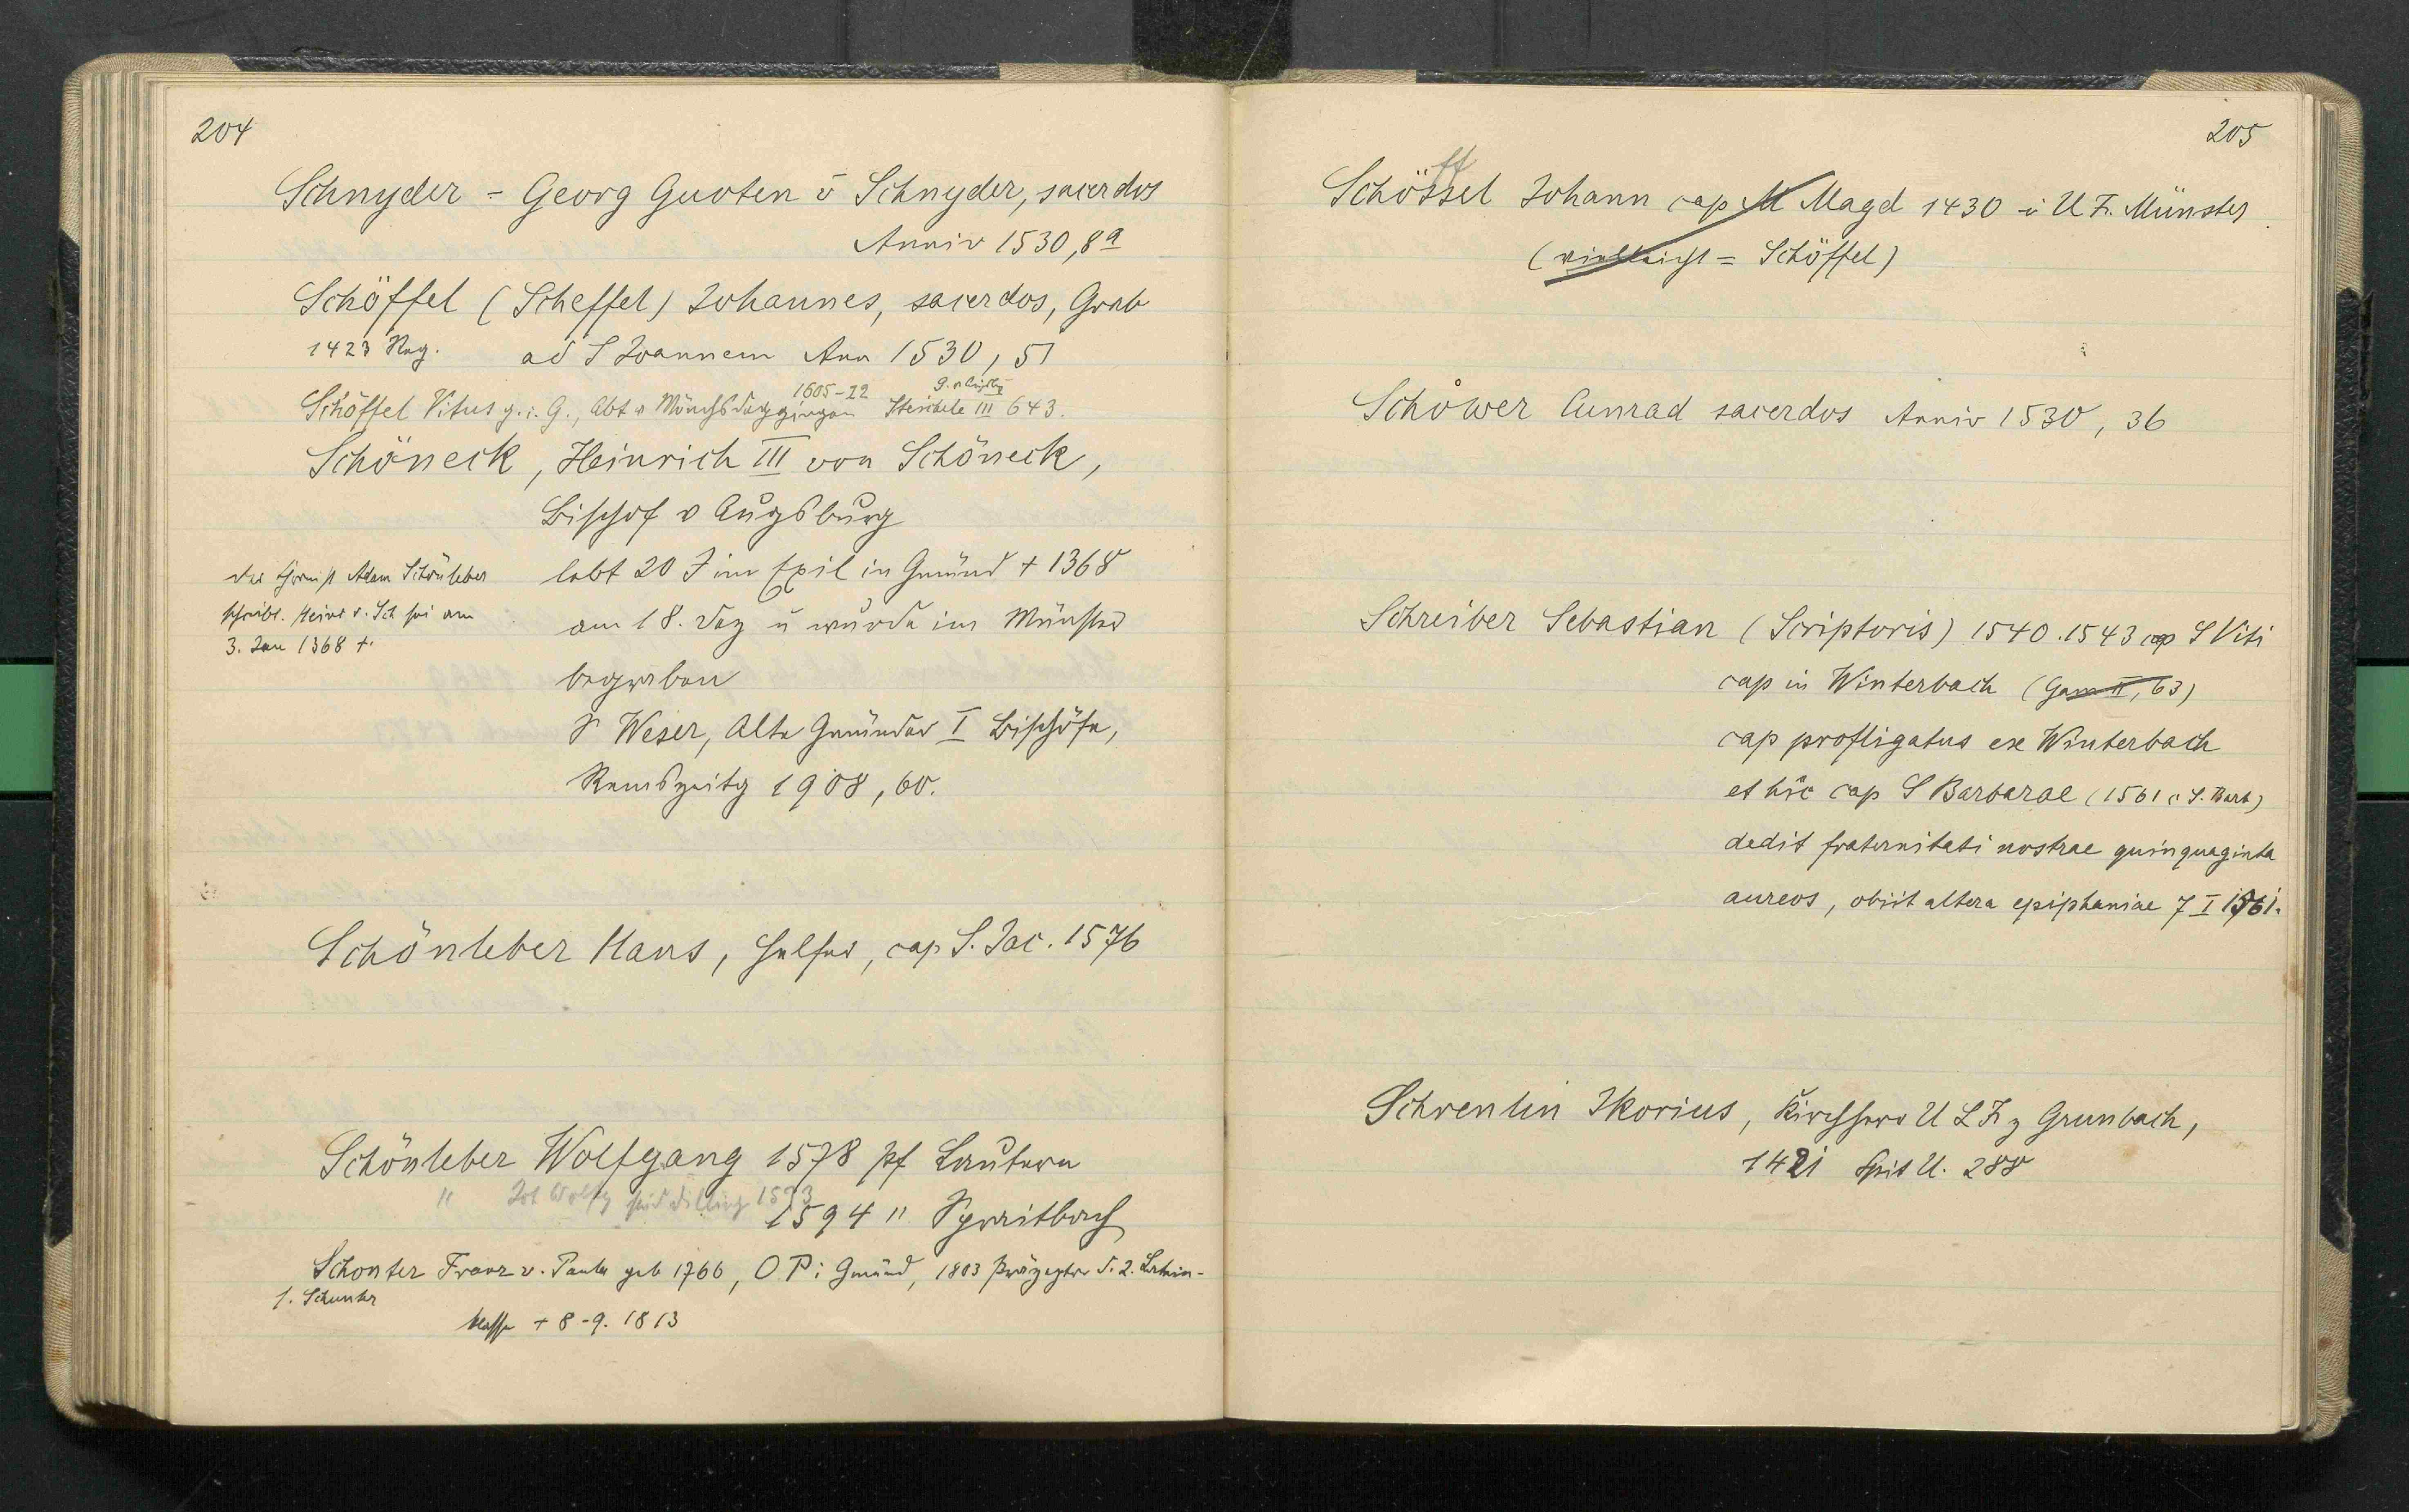 204
Schnyder = Georg Guoten v Schnyder, sacerdos
Anniv 1530, 8a
Schöffel (Scheffel) Johannes, sacerdos, Grab
1423 Reg. ad S Joannem Ann 1530, 51
1605-22
Schöffel Vitus g. i. G., Abt v Mönchsdeggingen Steichele III 643.
Schöneck, Heinrich III von Schöneck,
Bischof v Augsburg
lebt 20 J im Exil in Gmünd + 1368
am 18. Dez u wurde im Münster
begraben
S Weser, Alte Gmünder I Bischöfe,
Remszeitg 1908, 60.
der Chronist Adam Schönleber
schreibt. Heinr v. Sch sei am
3. Jan 1368 +.
Schönleber Hans, Helfer, cap S. Jac. 1576
Schönleber Wolfgang 1578 Pf Lautern
" Joh Wolfg stud Dilling 1573
1594 " Spraitbach
Schonter Franz v. Paula geb 1766, O P i Gmünd, 1803 Präzeptor d. 2. Latein-
s. Schunter
klasse + 8-9. 1813
205
ff
Schössel Johann cap M Magd 1430 i U Fr. Münster
(vielleicht = Schöffel)
Schöwer Cunrad sacerdos Anniv 1530, 36
Schreiber Sebastian (Scriptoris) 1540. 1543 cap S Viti
cap in Winterbach (Gam II, 63)
cap profligatus ex Winterbach
et hic cap S Barbarae (1561 c S. Barb)
dedit fraternitati nostrae quinquaginta
aureos, obiit altera epiphaniae 7 I 1561.
Schrenlin Ikorius, Kirchherr U L Fr z Grunbach,
1421 Spit U. 288